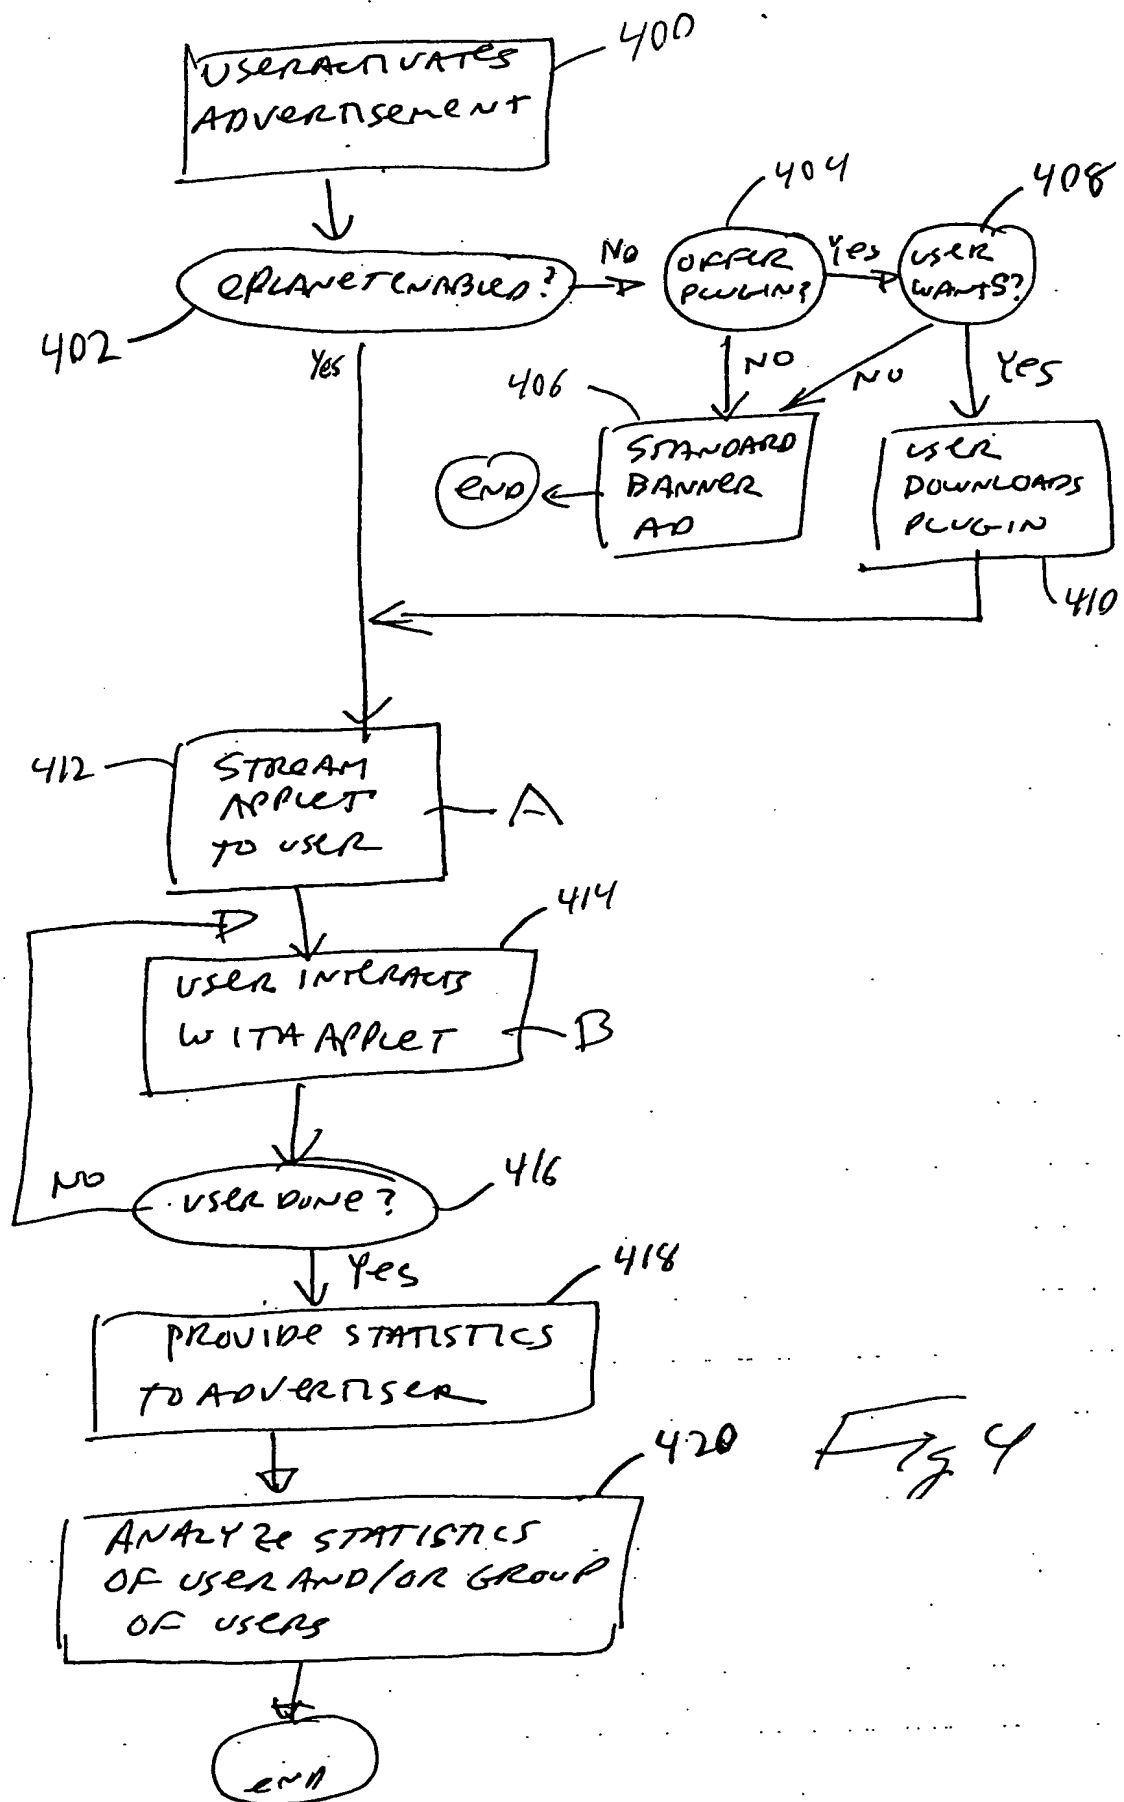 400
USER ACTIVATES
ADVERTISEMENT
404
408
ePLANET ENABLED?
No
OFFER
PLUGIN?
Yes
USER
WANTS?
402
Yes
NO
NO
Yes
406
STANDARD
BANNER
AD
END
USER
DOWNLOADS
PLUGIN
410
412
STREAM
APPLET
TO USER
A
414
USER INTERACTS
WITH APPLET
B
NO
USER DONE?
416
Yes
418
PROVIDE STATISTICS
TO ADVERTISER
420
Fig 4
ANALYZE STATISTICS
OF USER AND/OR GROUP
OF USERS
END